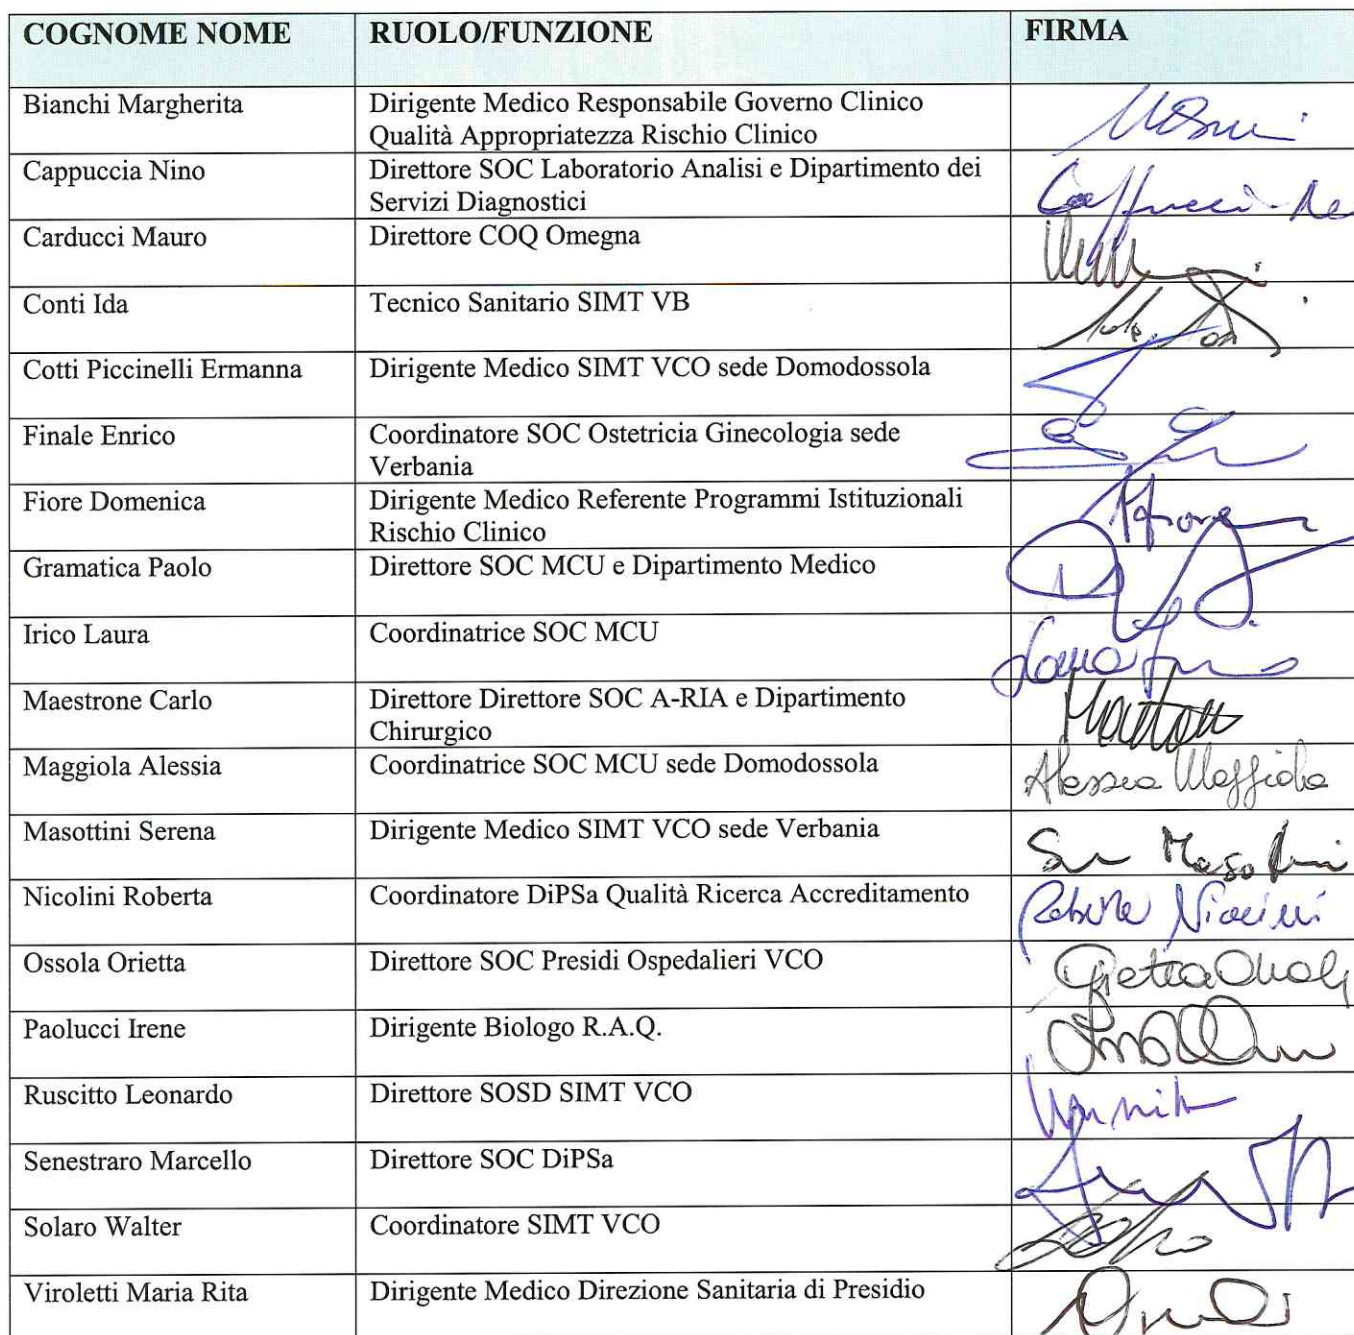 COGNOME NOME RUOLO/FUNZIONE FIRMA
Bianchi Margherita Dirigente Medico Responsabile Governo Clinico
Qualità Appropriatezza Rischio Clinico
Cappuccia Nino Direttore SOC Laboratorio Analisi e Dipartimento dei
Servizi Diagnostici
Carducci Mauro Direttore COQ Omegna
Conti Ida Tecnico Sanitario SIMT VB
Cotti Piccinelli Ermanna Dirigente Medico SIMT VCO sede Domodossola
Finale Enrico Coordinatore SOC Ostetricia Ginecologia sede
Verbania
Fiore Domenica Dirigente Medico Referente Programmi Istituzionali
Rischio Clinico
Gramatica Paolo Direttore SOC MCU e Dipartimento Medico
Irico Laura Coordinatrice SOC MCU
Maestrone Carlo Direttore Direttore SOC A-RIA e Dipartimento
Chirurgico
Maggiola Alessia Coordinatrice SOC MCU sede Domodossola Alessia Maggiola
Masottini Serena Dirigente Medico SIMT VCO sede Verbania
Nicolini Roberta Coordinatore DiPSa Qualità Ricerca Accreditamento Roberta Nicolini
Ossola Orietta Direttore SOC Presidi Ospedalieri VCO
Paolucci Irene Dirigente Biologo R.A.Q.
Ruscitto Leonardo Direttore SOSD SIMT VCO
Senestraro Marcello Direttore SOC DiPSa
Solaro Walter Coordinatore SIMT VCO
Viroletti Maria Rita Dirigente Medico Direzione Sanitaria di Presidio